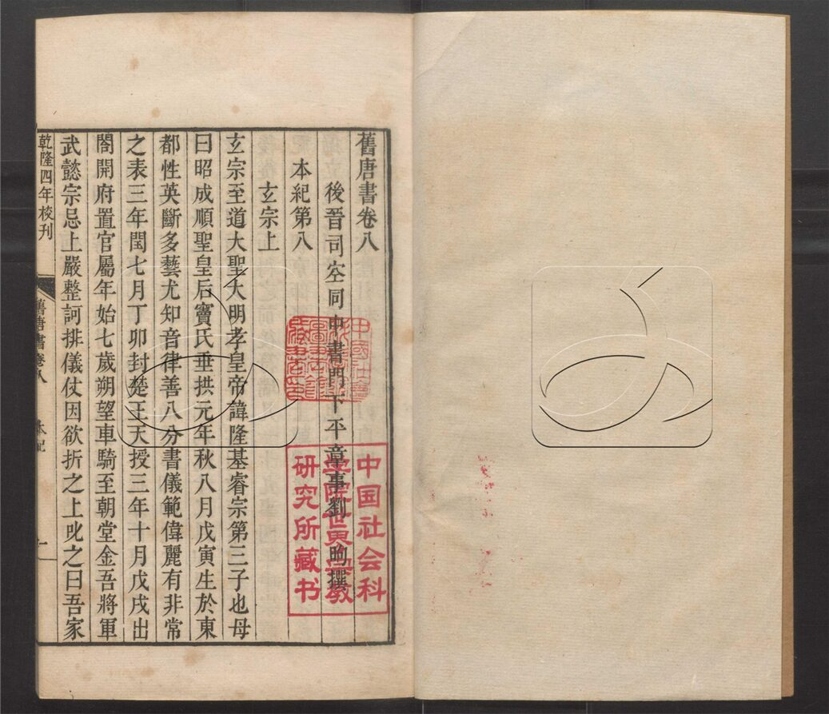 舊唐書卷八
後晉司空同中書門下平章事劉昫撰
本紀第八
玄宗上
玄宗至道大聖大明孝皇帝諱隆基睿宗第三子也母
曰昭成順聖皇后竇氏垂拱元年秋八月戊寅生於東
都性英斷多藝尤知音律善八分書儀範偉麗有非常
之表三年閏七月丁卯封楚王天授三年十月戊戌出
閤開府置官屬年始七歲朔望車騎至朝堂金吾將軍
武懿宗忌上嚴整訶排儀仗因欲折之上叱之曰吾家
乾隆四年校刊
舊唐書卷八
本紀
一
中国社会科
学院世界宗教
研究所藏书